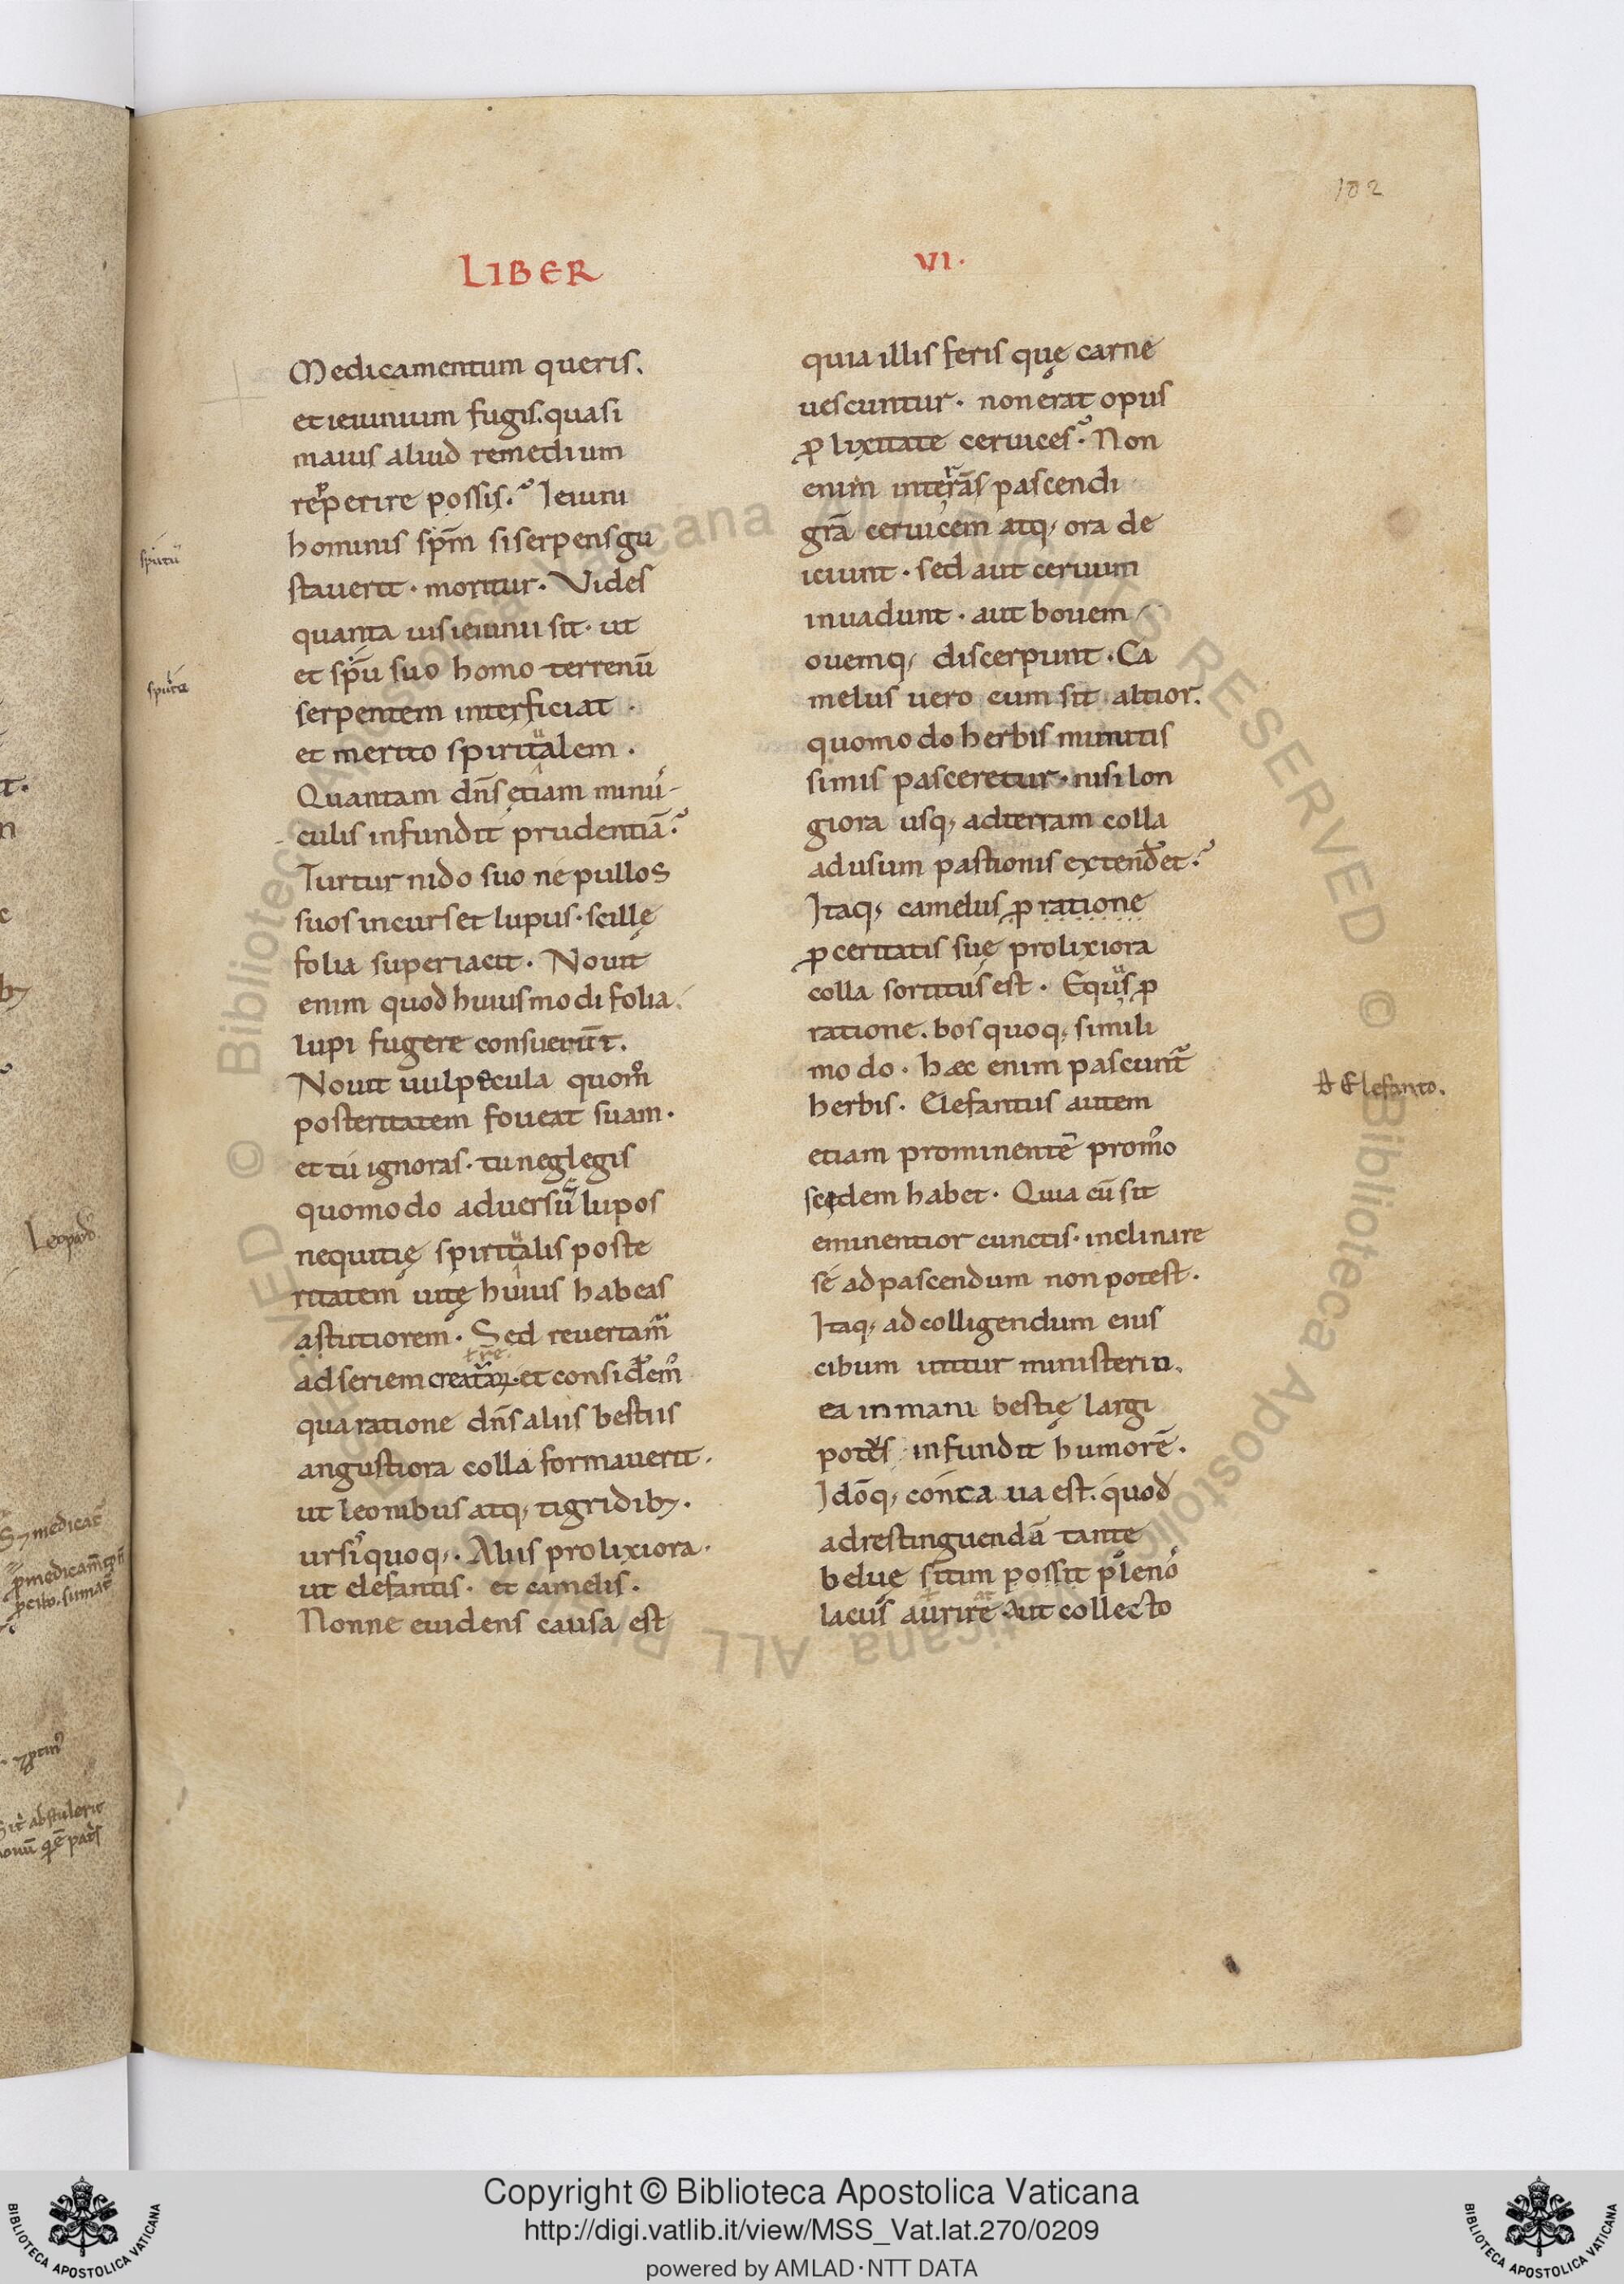 102
LIBER VI·
Medicamentum queris.
et ieiunium fugis. quasi
maius aliud remedium
repperire possis? Ieiuni
hominis sp̄m si serpens gu
staverit · moritur · Vides
quanta uis ieiunii sit · ut
et spūu suo homo terrenū
serpentem interficiat ·
et merito spiritualem ·
Quantam dn̄s etiam minús-
culis infundit prudentiā?
Turtur nido suo né pullos
suos incurset lupus · scillę
folia superiacit · Nouit
enim quod huiusmodi folia
lupi fugere consuerūt.
Nouit uulpecula quom̊
posteritatem foueat suam ·
et tú ignoras · tu neglegis
quomodo aduersū lupos
nequitię spiritualis poste
ritatem uitę huius habeas
astutiorem · Sed reuertam᷑
ad seriem et considem᷒
qua ratione dn̄s aliis bestiis
angustiora colla formauerit ·
ut leonibus atq; tigridib; ·
ursis quoq; · Aliis prolixiora ·
ut elefantis · et camelis ·
Nonne euidens causa est
quia illis feris quę carne
uescuntur · non erat opus
ꝓlixitate ceruices? Non
enim pascendi
grā ceruicem atq; ora de
iciunt · sed aut ceruum
inuadunt · aut bouem
ouemq; discerpunt · Ca
melus uero cum sit altior.
quomodo herbis minutis
simis pasceretur · nisi lon
giora usq; ad terram colla
ad usum pastionis extendet?
Itaq; camelus ꝓ ratione
ꝓceritatis suę prolixiora
colla sortitus est · Equus ꝓ
ratione. bos quoq; simili
modo · hæc enim pascunt᷑
herbis · Elefantus autem
etiam prominentē prom᷒o
scidem habet · Quia cū sit
eminentior cunctis · inclinare
sé ad pascendum non potest ·
Itaq; ad colligendum eius
cibum utitur ministerio.
ea inmani bestię largi
infundit humorē ·
Idōq; conca ua est. quod
ad restinguendā tante
beluę sitim possit pleno
lacus aurire · Aut collecto
sputū
sputa
A Elefanto.
Leopard᷒
Copyright © Biblioteca Apostolica Vaticana
http://digi.vatlib.it/view/MSS_Vat.lat.270/0209
powered by AMLAD·NTT DATA
BIBLIOTECA APOSTOLICA VATICANA
BIBLIOTECA APOSTOLICA VATICANA